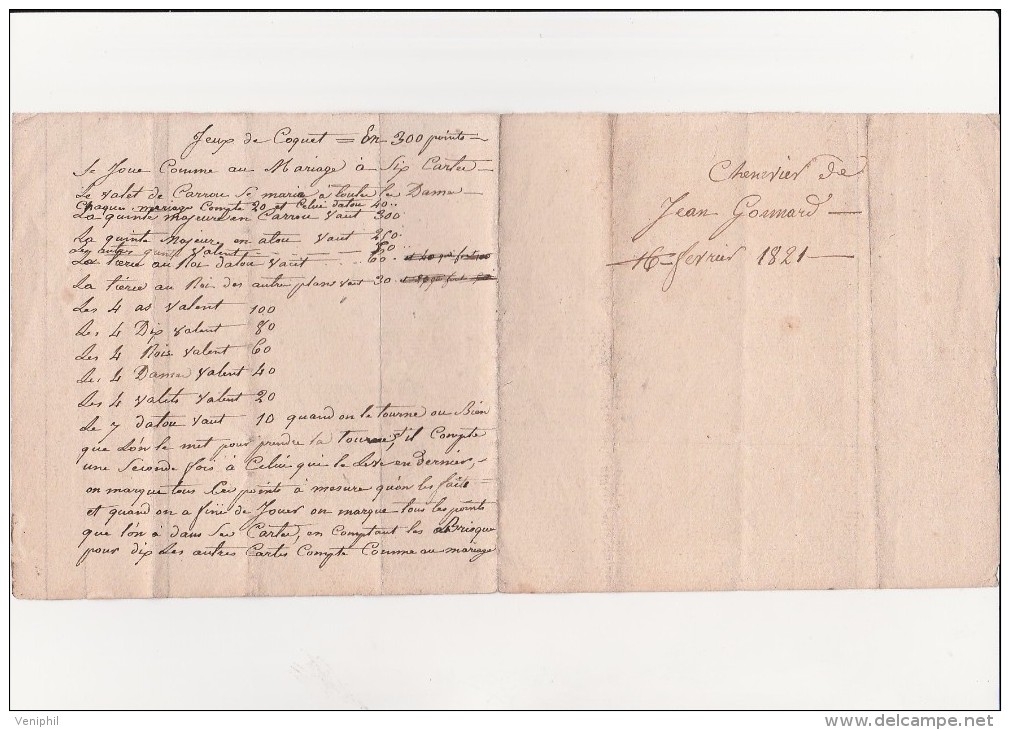 Jeux de Coquet = En 300 points
Se Joue Comme au Mariage à Six Cartes
Le valet de Carrou Se marie a toute les Dame
Chaque mariage Compte 20 et Celui datou 40..
La quinte majeure en Carrou Vaut 300
La quinte Majeur en atou vaut 250
Les autres quint valent 80
La tierce au Roi datou vaut .. 60
La tierce au Roi des autre plans vaut 30
Les 4 as valent 100
Les 4 Dix valent 80
Les 4 Rois valent 60
Les 4 Dames valent 40
Les 4 valets valent 20
Le 7 datou vaut 10 quand on le tourne ou Bien
que L'on le met pour prendre la tourne, s'il Compte
une Seconde fois à Celui qui le Leve en Dernier,
on marque tous Ces points à mesure qu'on les fait
et quand on a finÿ de Jouer on marque tous les points
que l'on à dans Ses Cartes, en Comptant les Brisque
pour dix Les autres Cartes Compte Comme au mariage
Chenevier de
Jean Gonnard
16 fevrier 1821
Veniphil
www.delcampe.net